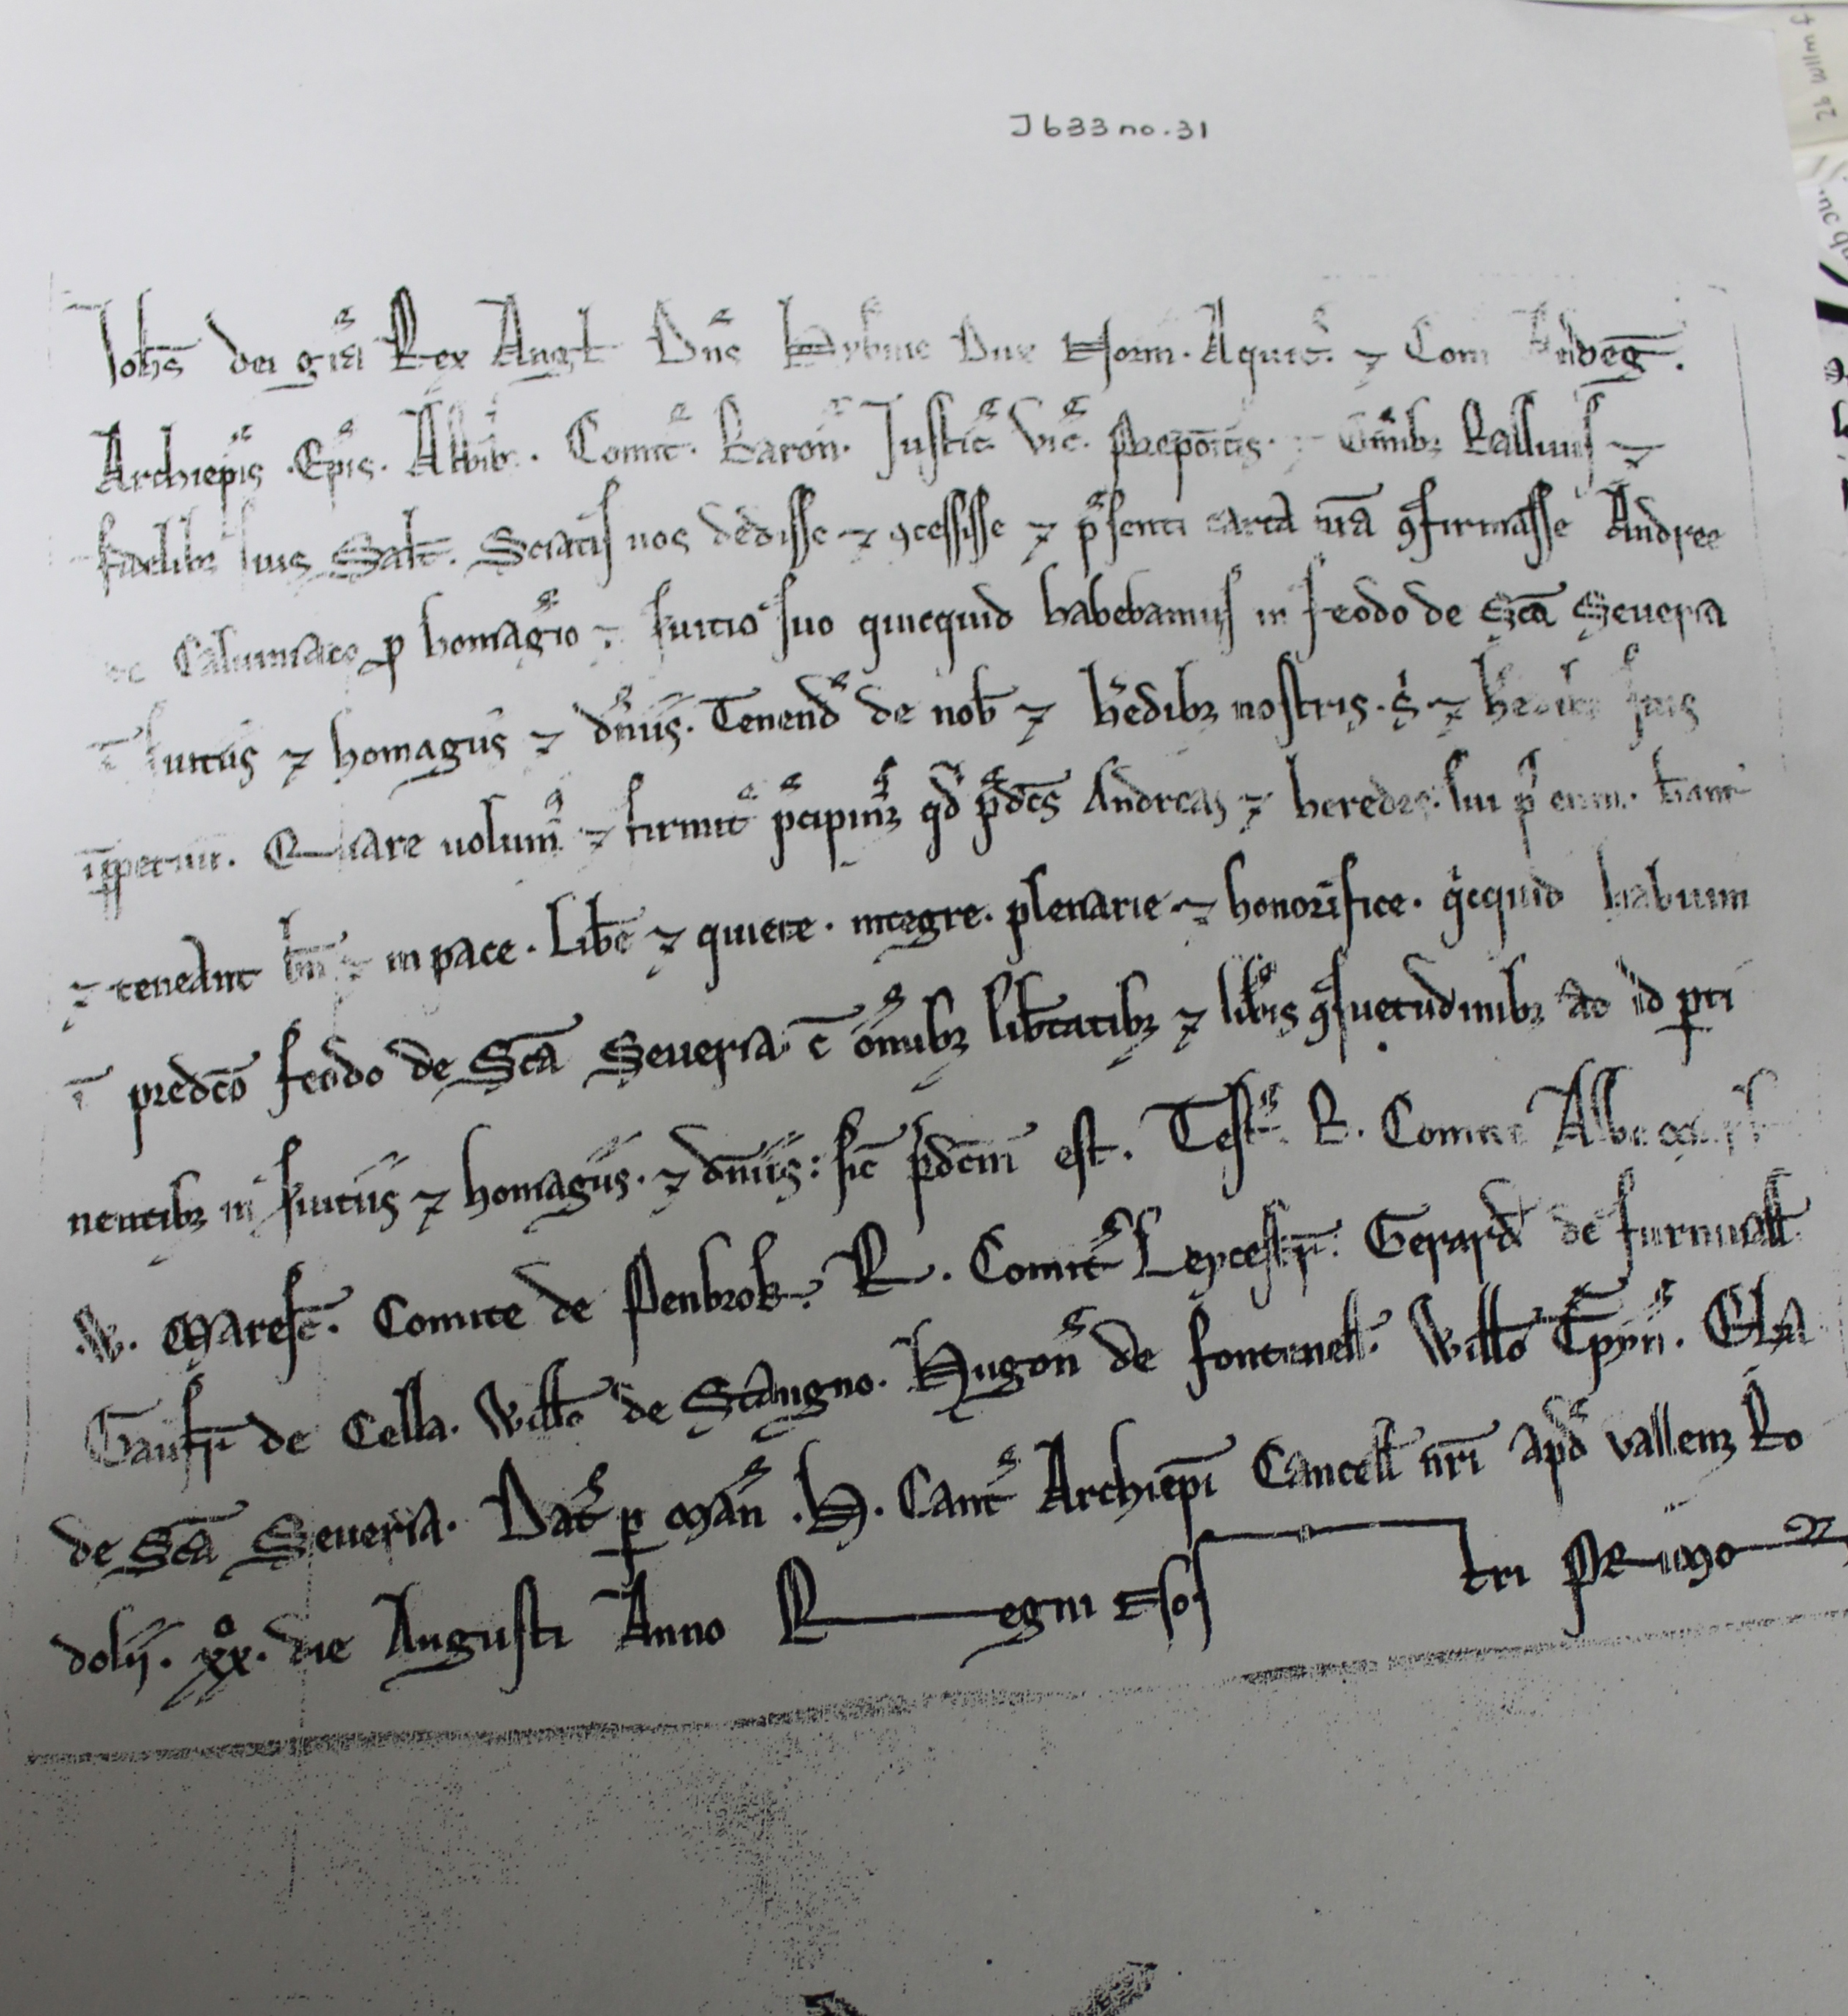 J 633 no. 31
Ioh̄s dei gr̄a Rex Angl̄ Dn̄s Hybnie Dux Norm. Aquit̄. ⁊ Com Andeḡ.
Archiep̄is. Ep̄is. Abb̄ib. Comit̄. Baron̄. Justic̄ Vic̄. Prepoitis. ⁊ Om̄ibꝫ Balliuis ⁊
fidelibꝫ suis Salt̄. Sciatis nos dedisse ⁊ ꝯcessisse ⁊ p̄senti carta nr̄a ꝯfirmasse Andree
de Caluiniaco ꝓ homagio ⁊ seruitio suo quicquid habebamus in feodo de Sc̄a Seueria
ī seruitiis ⁊ homagiis ⁊ dn̄iis. Tenend̄ de nob̄ ⁊ h̄edibꝫ nostris. s̄ ⁊ h̄edibꝫ suis
īꝑpetuū. Quare uolum̄ ⁊ firmit̄ p̄cipimꝫ qd̄ p̄dc̄s Andreas ⁊ heredes sui p̄ eum. h̄ant
⁊ teneant bn̄ ⁊ in pace. Lib̄e ⁊ quiete. integre. plenarie ⁊ honorifice. qicquid habuim
ī predc̄o feodo de Sc̄a Seueria c̄ om̄ibꝫ lib̄tatibꝫ ⁊ lib̄is ꝯsuetudinibꝫ ad id ꝑti
nentibꝫ in seruitiis ⁊ homagiis. ⁊ dn̄iis: sic̄ p̄dc̄m est. Test̄. B. Comite Albemarl̄
.W. Maresc̄. Comite de Penbrok̄. R. Comit̄ Leycestr̄. Gerard̄ de furniuall̄
Gaufr̄ de Cella. Willo̅ de Stangno. Hugon̄ de fontenell̄. Willo̅ Epyn̄. Elya
de Sc̄a Seueria. Dat̄ ꝑ Man̄ .H. Cant̄ Archiep̄i Cancell̄ nr̄i apd̄ vallem Ro
dolij. xxͦ. die Augusti Anno Regni Nostri Primo